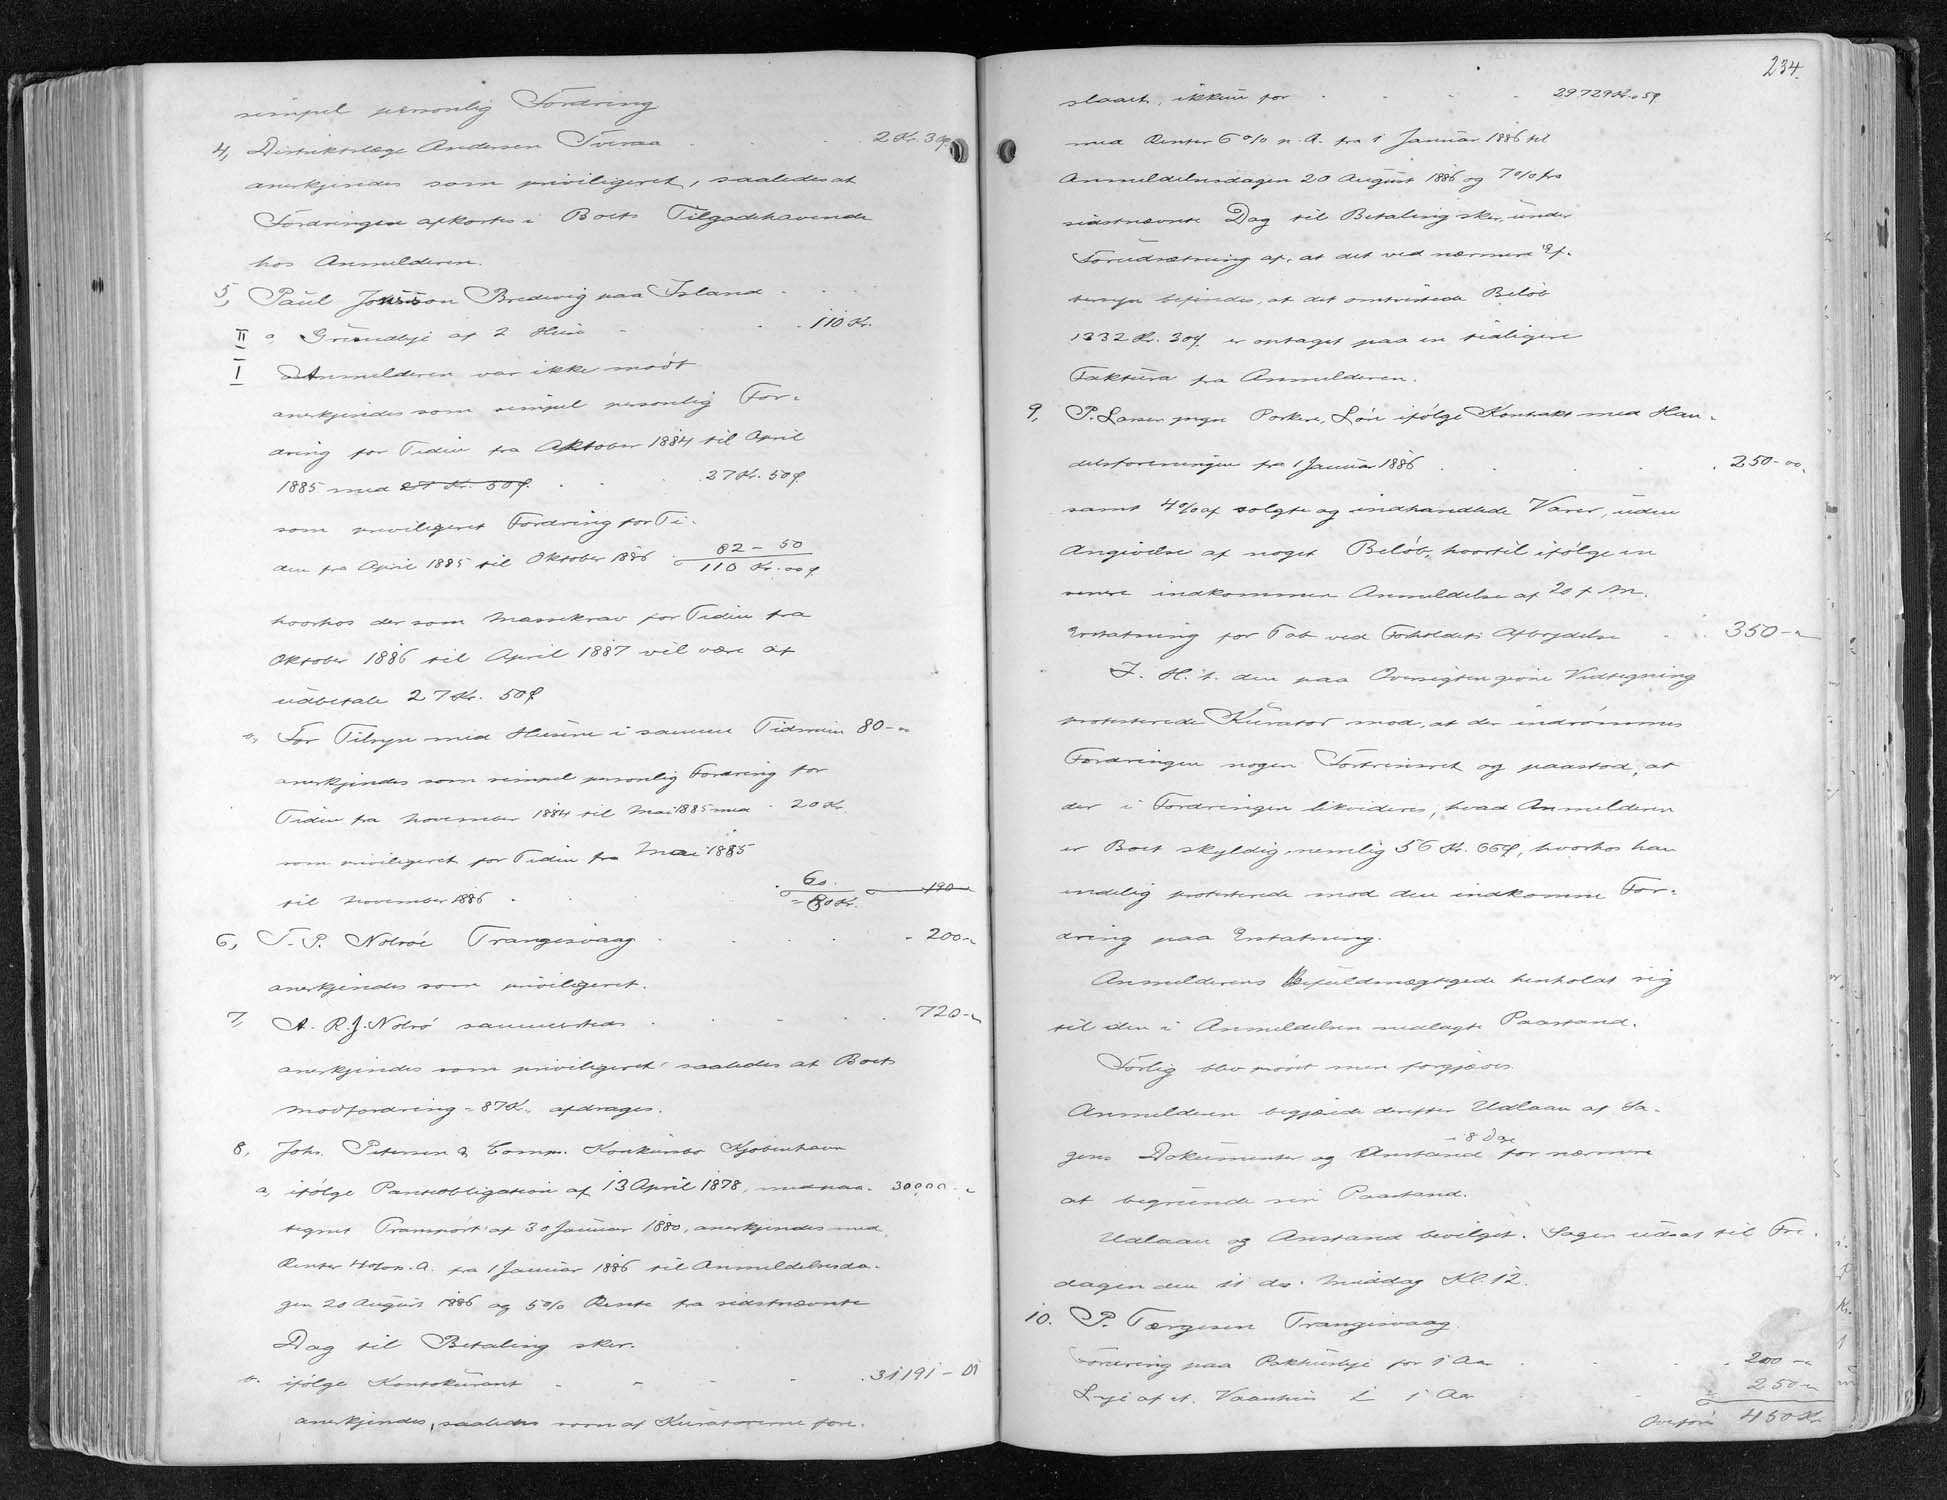 simpel personlig Fordring
4, Distriktslæge Andersen Tveraa . . . 2 Kr. 30ƒ
anerkjendes som priviligeret, saaledes at
Fordringen afkortes i Boets Tilgodehavende
hos Anmelderen.
5, Paul Jonsson Bredevig paa Island . . .
II a, Grundleje af 2 Huse . . . 110 Kr.
I Anmelderen var ikke mødt
anerkjendes som simpel personlig For-
dring for Tiden fra Oktober 1884 til April
1885 med 27 Kr. 50ƒ. . . 27 Kr. 50ƒ
som priviligeret Fordring for Ti-
den fra April 1885 til Oktober 1886 82 - 50
110 Kr. 00ƒ
hvorhos der som Massekrav for Tiden fra
Oktober 1886 til April 1887 vil være at
udbetale 27 Kr. 50ƒ
b, For Tilsyn med Husene i samme Tidsrum 80 - "
anerkjendes som simpel personlig Fordring for
Tiden fra November 1884 til Mai 1885 med . 20 Kr.
som priviligeret for Tiden fra Mai 1885
til November 1886 . . 60. 190
= 80 Kr.
6, T. P. Nolsöe Trangisvaag . . . 200 - "
anerkjendes som priviligeret.
7, A. R. J. Nolsö sammesteds . . . 720 - "
anerkjendes som priviligeret saaledes at Boets
Modfordring = 87 Kr. afdrages.
8, Johs. Petersen & Comp. Konkursbo Kjøbenhavn
a, ifølge Panteobligation af 13 April 1878, med paa- 30000 - "
tegnet Transport af 30 Januar 1880, anerkjendes med
Renter 4% p. A. fra 1 Januar 1886 til Anmeldelsesda-
gen 20 August 1886 og 5% Rente fra sidstnævnte
Dag til Betaling sker.
b. ifølge Kontokurant - - - - . 31191 - 01
anerkjendes, saaledes som af Kuratorerne fore-
234.
slaaet, ikkun for . . . 29729 Kr. 59
med Renter 6% p. A. fra 1 Januar 1886 til
Anmeldelsesdagen 20 August 1886 og 7% fra
sidstnævnte Dag til Betaling sker, under
Forudsætning af, at det ved nærmere Ef-
tersyn befindes, at det omtvistede Beløb
1332 Kr. 30ƒ er optaget paa en tidligere
Faktura fra Anmelderen.
9, P. Larsen yngre Porkere, Løn ifølge Kontrakt med Han-
delsforeningen fra 1 Januar 1886 . . . 250 - 00
samt 4% af solgte og indhandlede Varer, uden
Angivelse af noget Beløb, hvortil ifølge en
senere indkommen Anmeldelse af 20 f. M.
Erstatning for Tab ved Forholdets Afbrydelse . . 350 - "
I. H. t. den paa Oversigten gjorte Vidtegning
protesterede Kurator mod, at der indrømmes
Fordringen nogen Fortrinsret og paastod, at
der i Fordringen likvideres, hvad Anmelderen
er Boet skyldig, nemlig 56 Kr. 66ƒ, hvorhos han
endelig protesterede mod den indkomne For-
dring paa Erstatning.
Anmelderens Befuldmægtigede henholdt sig
til den i Anmeldelsen nedlagte Paastand.
Forlig blev prøvet men forgjæves.
Anmelderen begjærede derefter Udlaan af Sa-
gens Dokumenter og Anstand i 8 Dage for nærmere
at begrunde sin Paastand.
Udlaan og Anstand bevilget. Sagen udsat til Fre-
dagen den 11 ds. Middag Kl. 12.
10. P. Tærgesen Trangisvaag.
Fordring paa Pakhusleje for 1 Aar . . . 200 - "
Leje af et Vaanhus i 1 Aar 250 - "
Overføres 450 Kr